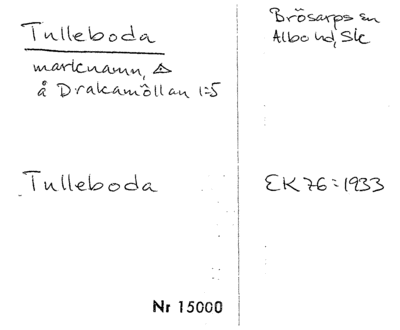 Tulleboda
Brösarps sn
Albo hd, Sk
marknamn, ⚠
å Drakamöllan 1:5
Tulleboda
EK 76:1933
Nr 15000